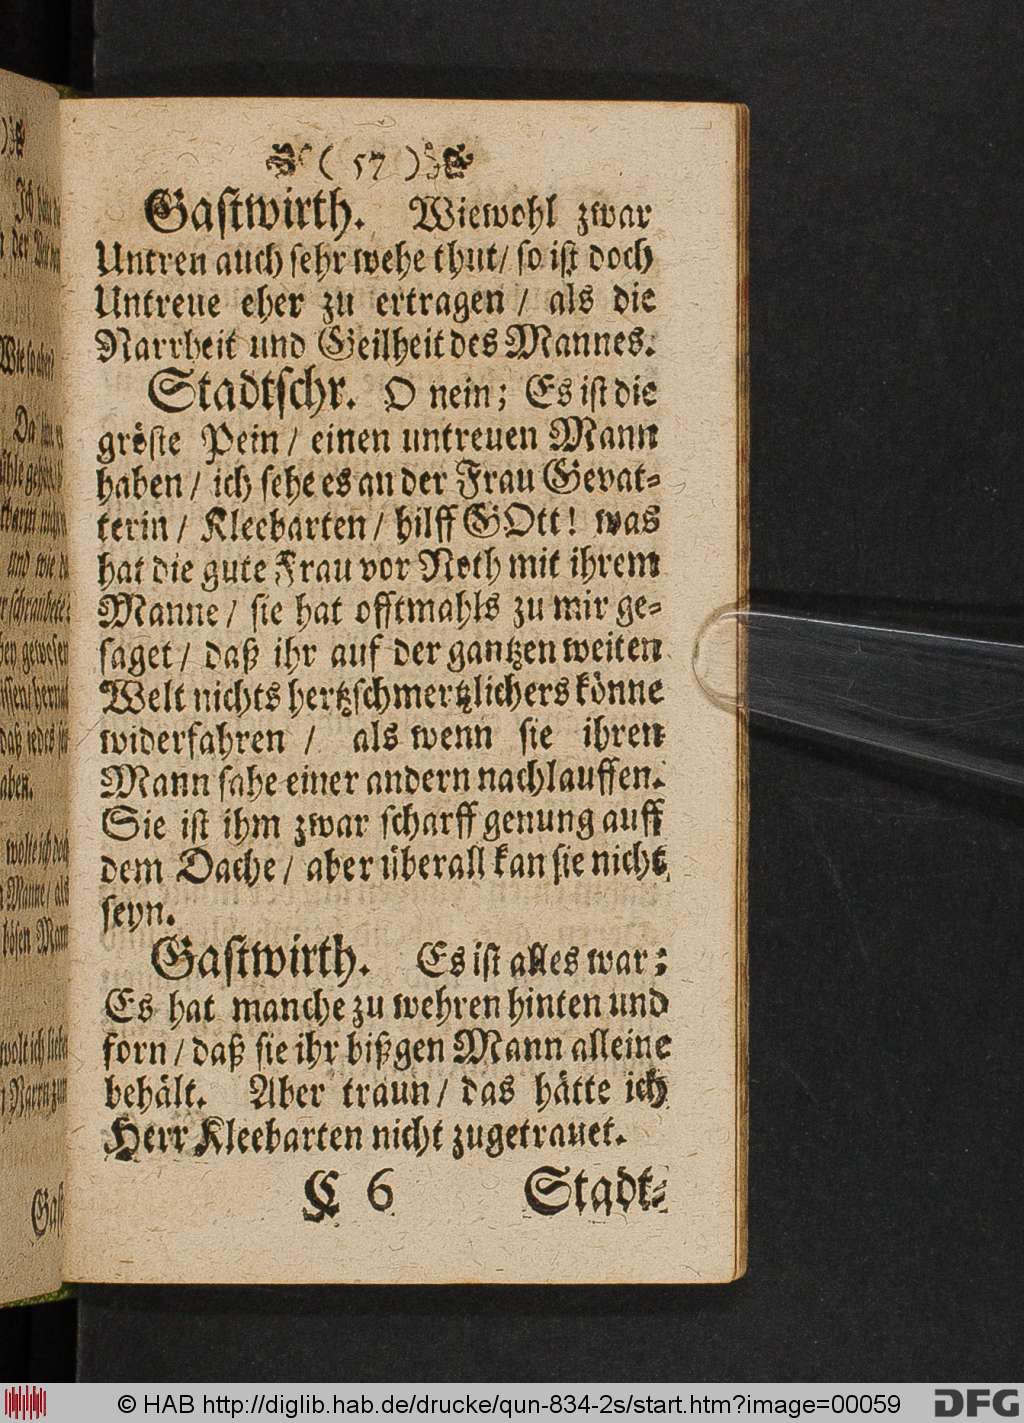 ( 57 )
Gastwirth. Wiewohl zwar
Untren auch sehr wehe thut/ so ist doch
Untreue eher zu ertragen / als die
Narrheit und Geilheit des Mannes.
Stadtschr. O nein; Es ist die
gröste Pein / einen untreuen Mann
haben / ich sehe es an der Frau Gevat-
terin / Kleebarten / hilff GOtt! was
hat die gute Frau vor Noth mit ihrem
Manne / sie hat offtmahls zu mir ge-
saget / daß ihr auf der gantzen weiten
Welt nichts hertzschmertzlichers könne
widerfahren / als wenn sie ihren
Mann sahe einer andern nachlauffen.
Sie ist ihm zwar scharff genung auff
dem Dache / aber überall kan sie nicht
seyn.
Gastwirth. Es ist alles war;
Es hat manche zu wehren hinten und
forn / daß sie ihr bißgen Mann alleine
behält. Aber traun / das hätte ich
Herr Kleebarten nicht zugetrauet.
C 6 Stadt-
© HAB http://diglib.hab.de/drucke/qun-834-2s/start.htm?image=00059
DFG